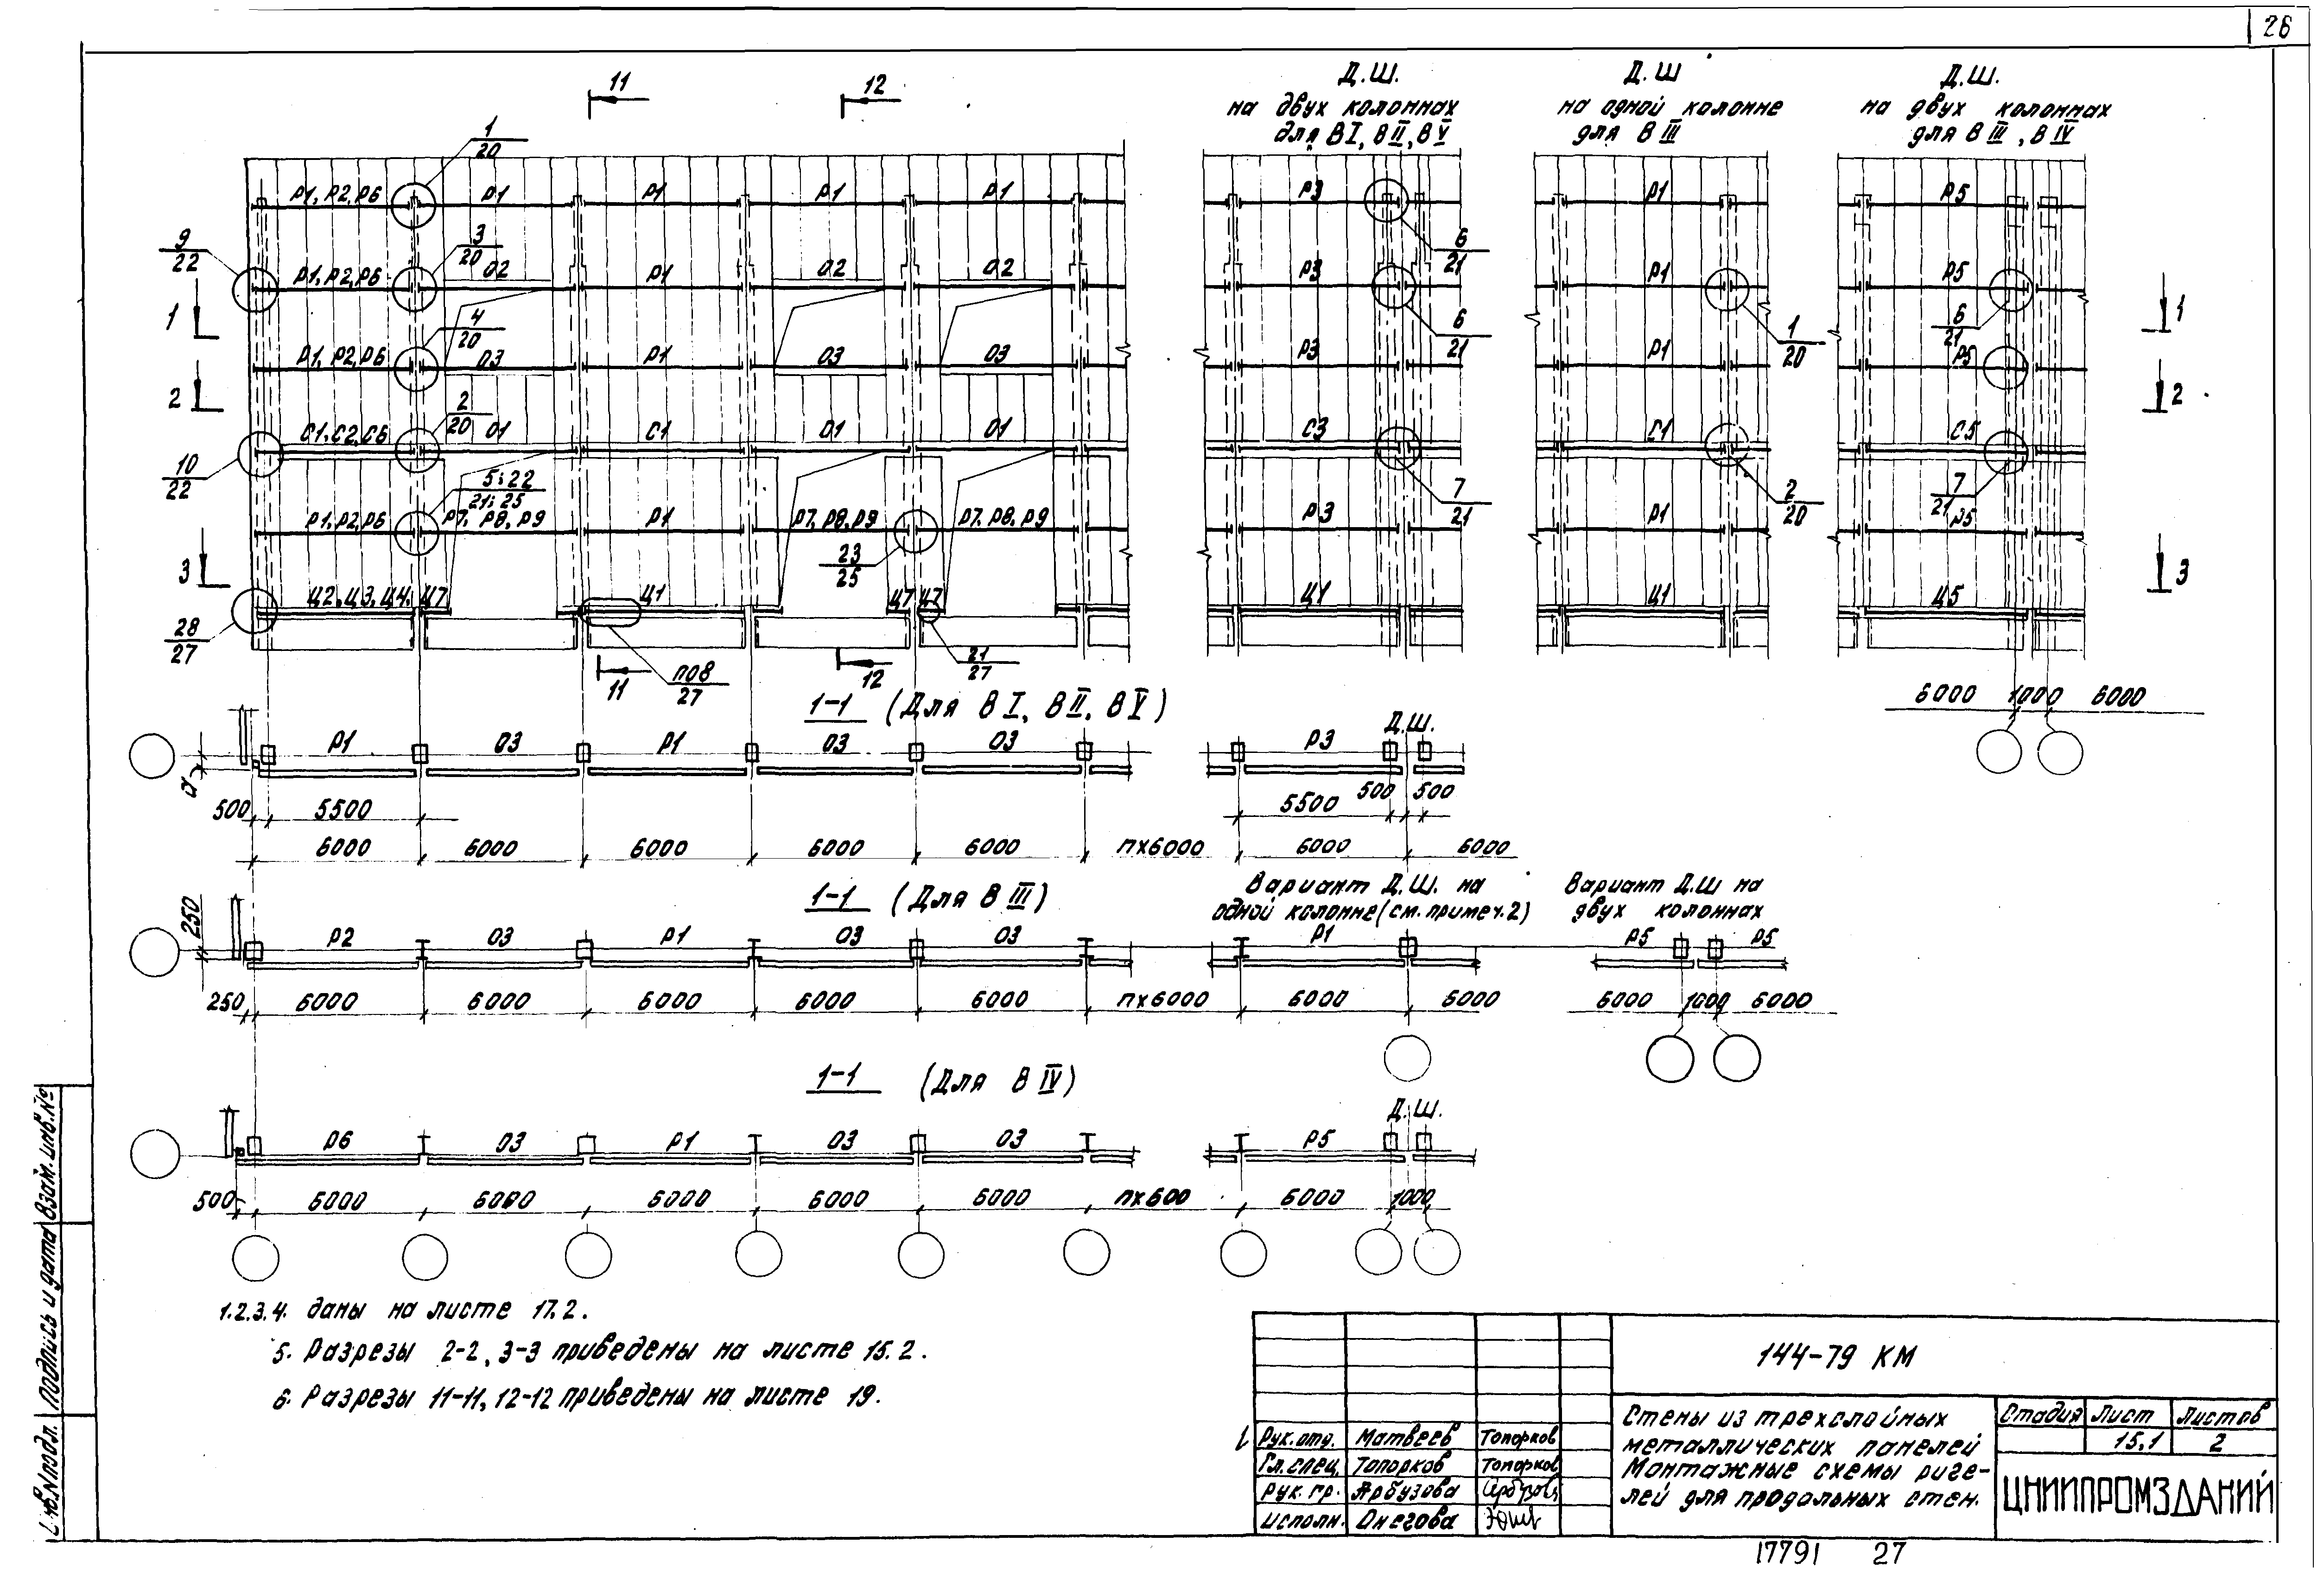 26
11
12
Д.Ш.
на двух колоннах
для В I, В II, В V
Д.Ш
на одной колонне
для В III
Д.Ш.
на двух колоннах
для В III, В IV
1
20
Р1, Р2, Р6
Р1
Р1
Р1
Р1
Р3
Р1
Р5
9
22
3
20
6
21
Р1, Р2, Р6
О2
Р1
О2
О2
Р3
Р1
Р5
1
4
20
6
21
1
20
6
21
1
Р1, Р2, Р6
О3
Р1
О3
О3
Р3
Р1
Р5
2
2
20
2
С1, С2, С6
О1
С1
О1
О1
С3
С1
С5
10
22
5; 22
21; 25
7
21
2
20
7
21
Р1, Р2, Р6
Р7, Р8, Р9
Р1
Р7, Р8, Р9
Р7, Р8, Р9
Р3
Р1
Р5
23
25
3
3
Ц2, Ц3, Ц4, Ц7
Ц1
Ц7 Ц7
Ц1
Ц1
Ц5
28
27
11
по8
27
12
21
27
6000 1000 6000
1-1 (Для В I, В II, В V)
Д.Ш.
Р1 О3 Р1 О3 О3 Р3
500 5500 5500 500 500
6000 6000 6000 6000 6000 п×6000 6000 6000
1-1 (Для В III)
Вариант Д.Ш. на
одной колонне (см. примеч.2)
Вариант Д.Ш на
двух колоннах
250
Р2 О3 Р1 О3 О3 Р1 Р5 Р5
250 6000 6000 6000 6000 6000 п×6000 6000 6000 6000 1000 6000
1-1 (Для В IV)
Д.Ш.
Р6 О3 Р1 О3 О3 Р5
500 6000 6000 6000 6000 6000 п×600 6000 1000
1.2.3.4. даны на листе 17.2.
5. Разрезы 2-2, 3-3 приведены на листе 15.2.
6. Разрезы 11-11, 12-12 приведены на листе 19.
144-79 КМ
Стены из трехслойных
металлических панелей
Монтажные схемы риге-
лей для продольных стен.
Стадия Лист Листов
15.1 2
ЦНИИПРОМЗДАНИЙ
Рук. отд. Матвеев Топорков
Гл. спец. Топорков Топорков
Рук. гр. Арбузова
Исполн. Онегова
Инв.№ подл. Подпись и дата Взам. инв.№
17791 27